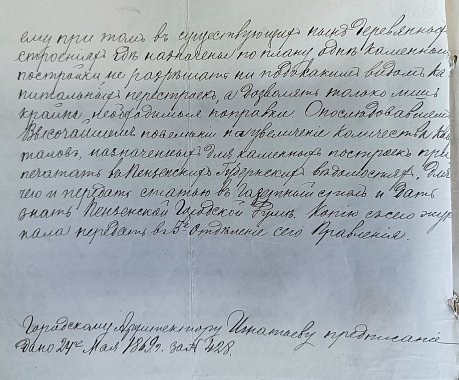 ему при томъ въ существующихъ нынѣ деревянныхъ
строеніяхъ гдѣ назначены по плану однѣ каменныя
постройки не разрѣшать ни подъ какимъ видомъ ка
питальныхъ перестроекъ, а дозволять только лишь
крайне необходимыя поправки. О послѣдовавшемъ
Высочайшемъ повелѣніи на увеличеніе количества квар
таловъ, назначенныхъ для каменныхъ построекъ при
печатать въ Пензенскихъ Губернскихъ вѣдомостяхъ, для
чего и передать статью въ Газетный столъ и дать
знать Пензенской Городской Думѣ. Копію съ сего жур
нала передать въ 3е отдѣленіе сего Правленія.
Городскому Архитектору Игнатьеву предписаніе
дано 24го Мая 1869 г. за № 428.